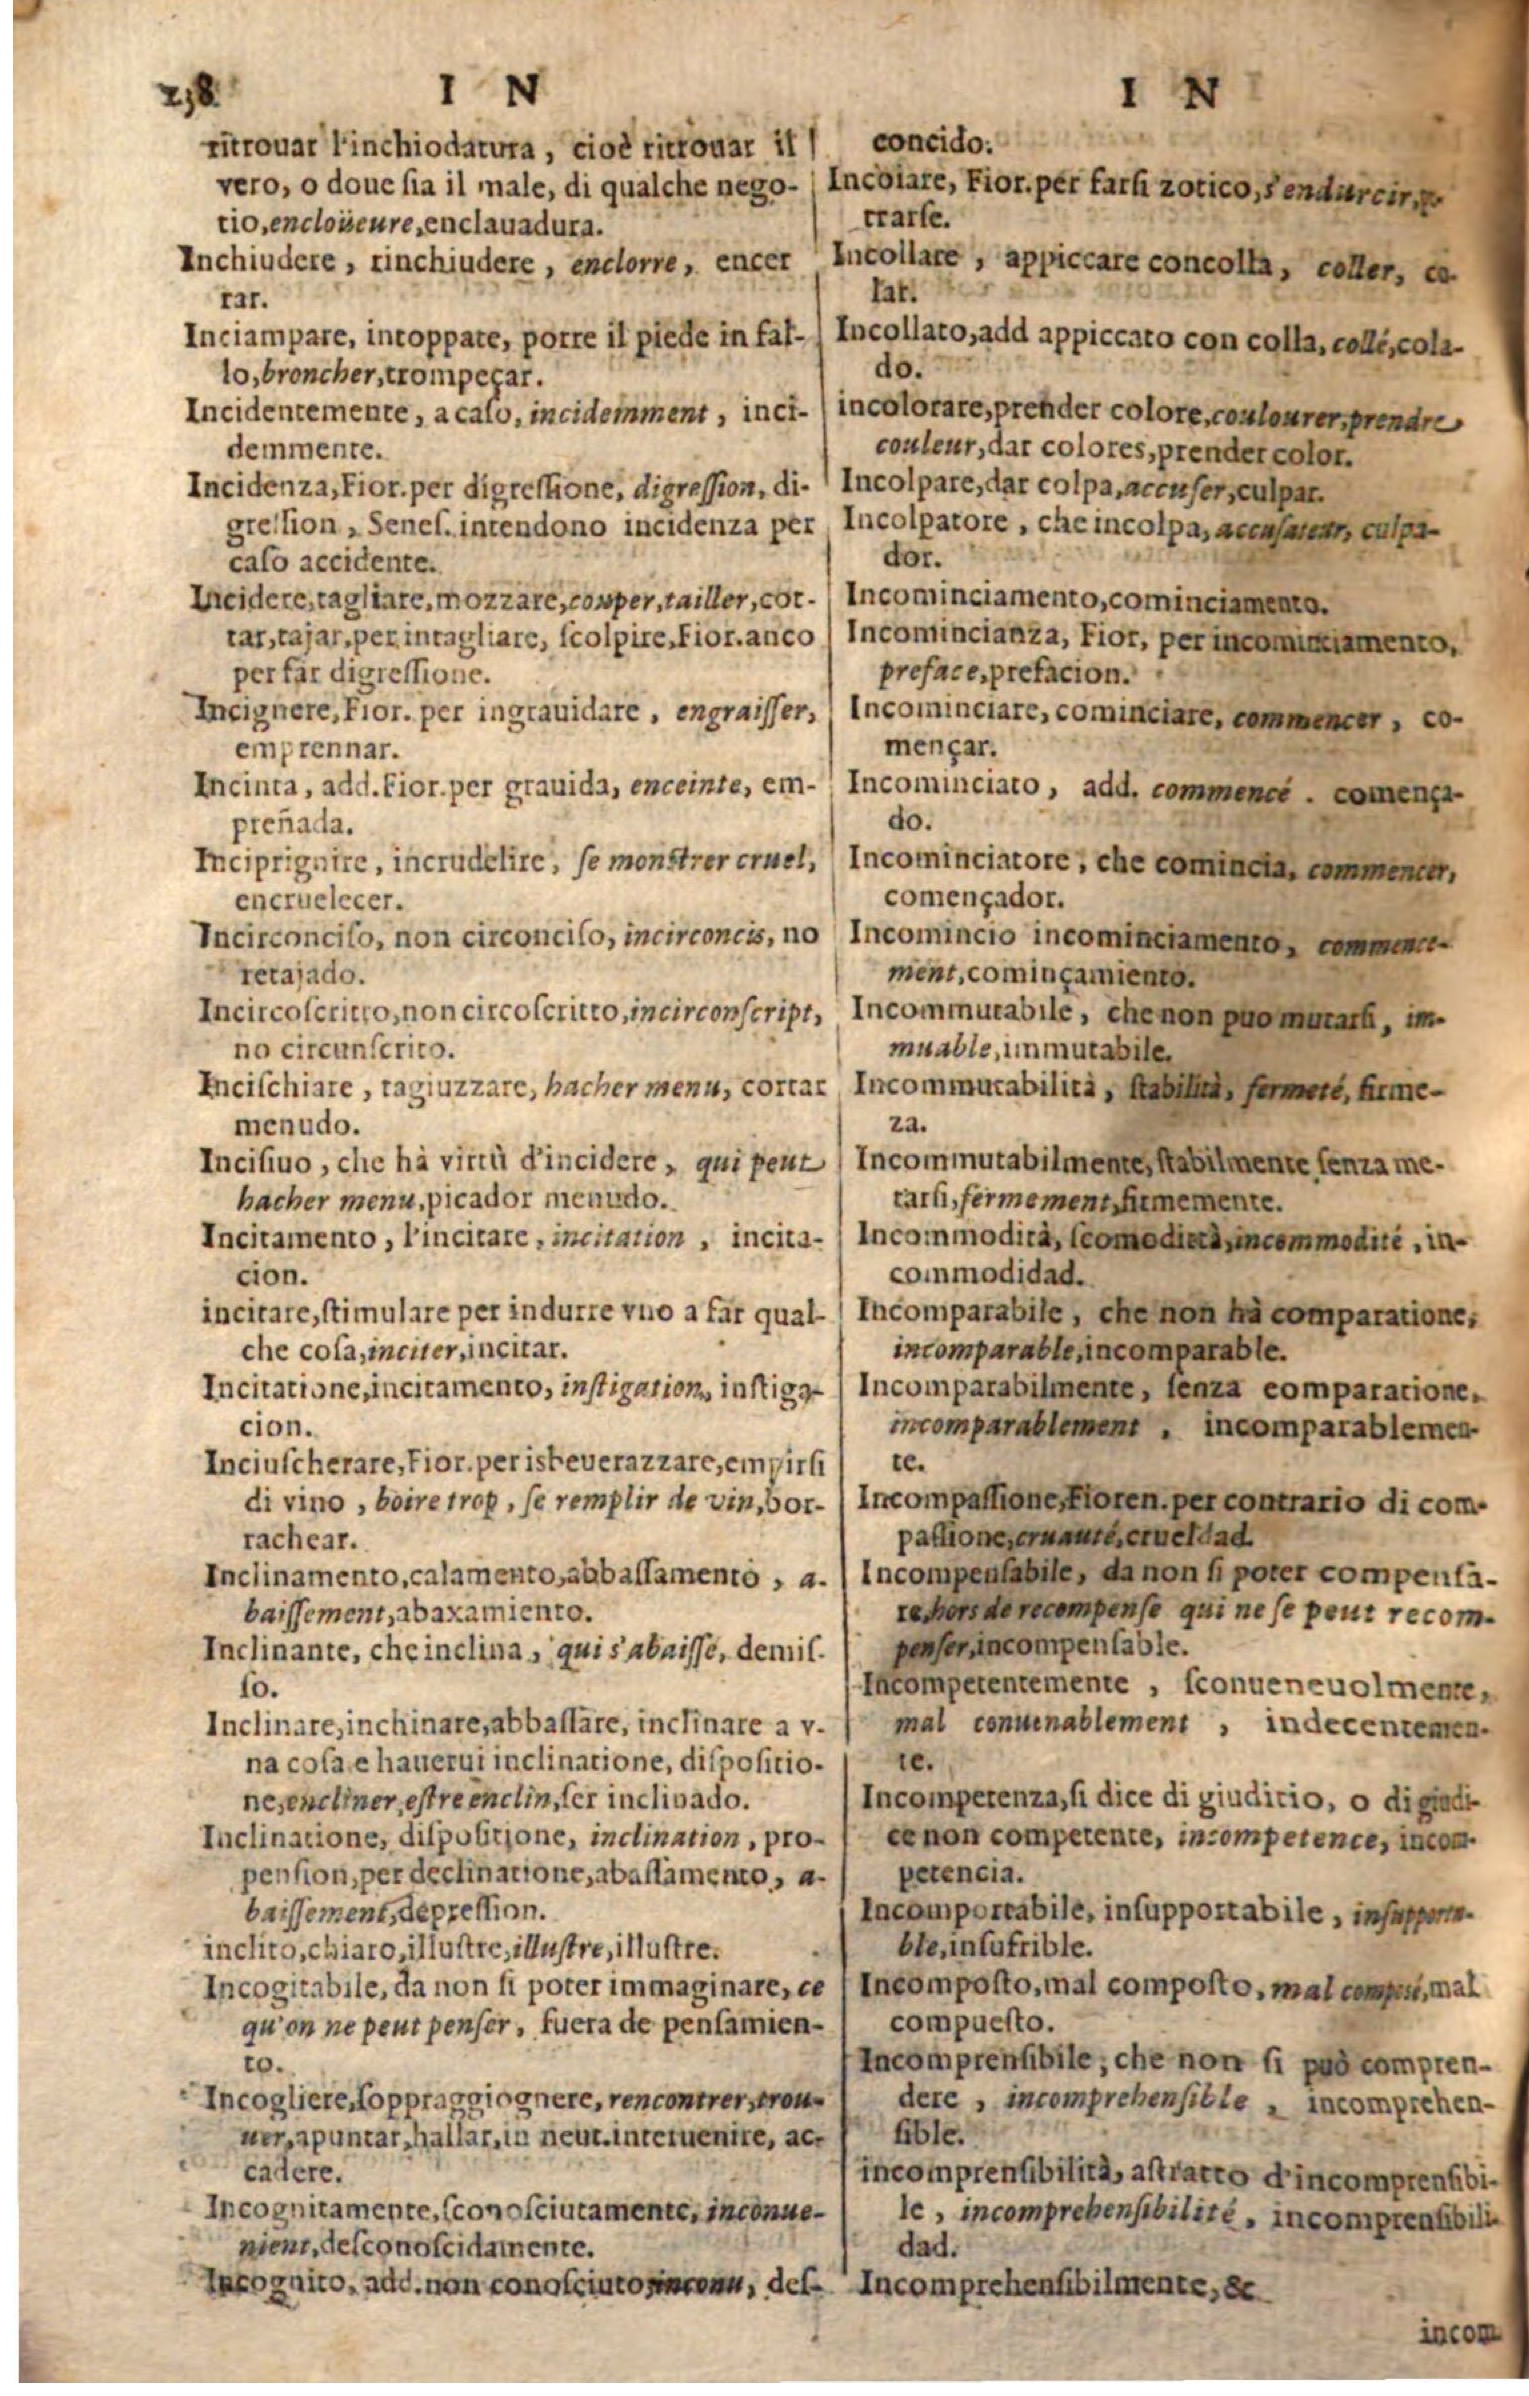 238 I N
ritrouar l'inchiodatura, cioè ritrouar il
vero, o doue ſia il male, di qualche nego-
tio, encloüeure, enclauadura.
Inchiudere, rinchiudere, enclorre, encer
rar.
Inciampare, intoppare, porre il piede in fal-
lo, broncher, trompeçar.
Incidentemente, a caſo, incidemment, inci-
demmente.
Incidenza, Fior. per digreſſione, digreſſion, di-
greſſion, Seneſ. intendono incidenza per
caſo accidente.
Incidere, tagliare, mozzare, couper, tailler, cor-
tar, tajar, per intagliare, ſcolpire, Fior. anco
per far digreſſione.
Incignere, Fior. per ingrauidare, engraiſſer,
emprennar.
Incinta, add. Fior. per grauida, enceinte, em-
preñada.
Inciprignire, incrudelire, ſe monſtrer cruel,
encruelecer.
Incirconciſo, non circonciſo, incirconcis, no
retajado.
Incircoſcritto, non circoſcritto, incirconſcript,
no circunſcrito.
Inciſchiare, tagiuzzare, hacher menu, cortar
menudo.
Inciſiuo, che hà virtù d'incidere, qui peut
hacher menu, picador menudo.
Incitamento, l'incitare, incitation, incita-
cion.
incitare, ſtimulare per indurre vno a far qual-
che coſa, inciter, incitar.
Incitatione, incitamento, inſtigation, inſtiga-
cion.
Inciuſcherare, Fior. per isbeuerazzare, empirſi
di vino, boire trop, ſe remplir de vin, bor-
rachear.
Inclinamento, calamento, abbaſſamento, a-
baiſſement, abaxamiento.
Inclinante, che inclina, qui s'abaiſſe, demiſ-
ſo.
Inclinare, inchinare, abbaſſare, inclinare a v-
na coſa e hauerui inclinatione, diſpoſitio-
ne, encliner, eſtre enclin, ſer inclinado.
Inclinatione, diſpoſitione, inclination, pro-
penſion, per declinatione, abaſſamento, a-
baiſſement, depreſſion.
inclito, chiaro, illuſtre, illuſtre, illuſtre.
Incogitabile, da non ſi poter immaginare, ce
qu'on ne peut penſer, fuera de penſamien-
to.
Incogliere, ſoppraggiognere, rencontrer, trou-
uer, apuntar, hallar, in neut. interuenire, ac-
cadere.
Incognitamente, ſconoſciutamente, inconue-
nient, deſconoſcidamente.
Incognito, add. non conoſciuto, inconu, deſ-
I N
concido.
Incoiare, Fior. per farſi zotico, s'endurcir,
trarſe.
Incollare, appiccare concolla, coller, co-
lar.
Incollato, add appiccato con colla, collé, cola-
do.
incolorare, prender colore, coulourer, prendre
couleur, dar colores, prender color.
Incolpare, dar colpa, accuſer, culpar.
Incolpatore, che incolpa, accuſateur, culpa-
dor.
Incominciamento, cominciamento.
Incomincianza, Fior, per incominciamento,
preface, prefacion.
Incominciare, cominciare, commencer, co-
mençar.
Incominciato, add. commencé. começa-
do.
Incominciatore, che comincia, commencer,
començador.
Incomincio incominciamento, commence-
ment, cominçamiento.
Incommutabile, che non puo mutarſi, im-
muable, immutabile.
Incommutabilità, ſtabilità, fermeté, firme-
za.
Incommutabilmente, ſtabilmente ſenza me-
tarſi, fermement, firmemente.
Incommodità, ſcomodità, incommodité, in-
commodidad.
Incomparabile, che non hà comparatione,
incomparable, incomparable.
Incomparabilmente, ſenza comparatione,
incomparablement, incomparablemen-
te.
Incompaſſione, Fioren. per contrario di com-
paſſione, cruauté, crueldad.
Incompenſabile, da non ſi poter compenſa-
re, hors de recompenſe qui ne ſe peut recom-
penſer, incompenſable.
Incompetentemente, ſconueneuolmente,
mal conuenablement, indecentemen-
te.
Incompetenza, ſi dice di giuditio, o di giudi-
ce non competente, incompetence, incom-
petencia.
Incomportabile, inſupportabile, inſupporta-
ble, inſufrible.
Incompoſto, mal compoſto, mal compoſé, mal
compueſto.
Incomprenſibile, che non ſi può compren-
dere, incomprehenſible, incomprehen-
ſible.
incomprenſibilità, aſtratto d'incomprenſibi-
le, incomprehenſibilité, incomprenſibili-
dad.
Incomprehenſibilmente, &c
incom